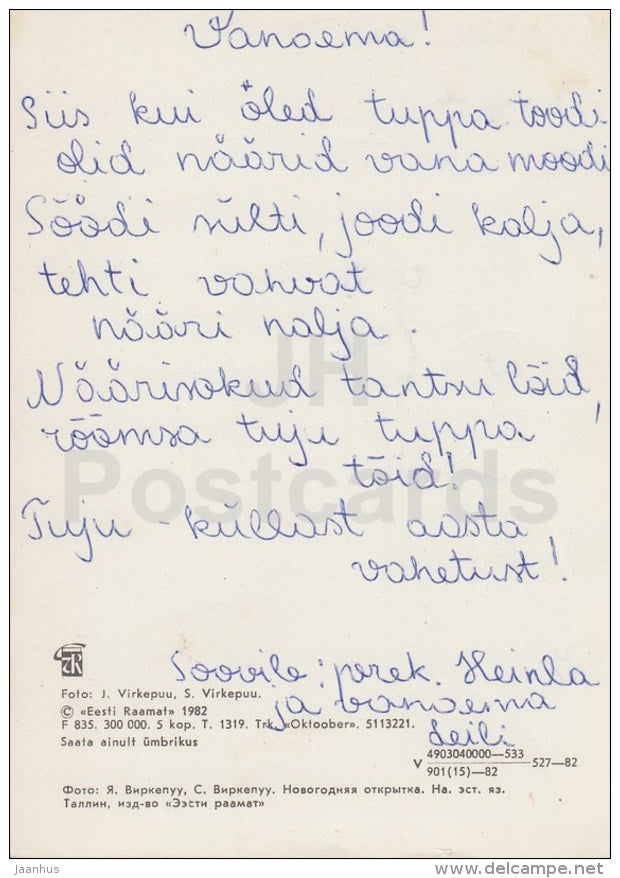 Vanaema!
Siis kui õled tuppa toodi
olid näärid vana moodi
Söödi sülti, joodi kalja,
tehti vahvat
nääri nalja.
Näärisokud tantsu lõid,
rõõmsa tuju tuppa
tõid!
Tuju-küllast aasta
vahetust!
Soovib: perek. Heinla
ja vanaema
Leili
Foto: J. Virkepuu, S. Virkepuu.
© «Eesti Raamat» 1982
F 835. 300 000. 5 kop. T. 1319. Trk. «Oktoober». 5113221.
Saata ainult ümbrikus
V 4903040000—533
901(15)—82 527—82
Фото: Я. Виркепуу, С. Виркепуу. Новогодняя открытка. На. эст. яз.
Таллин, изд-во «Ээсти раамат»
JH
Postcards
jaanhus
www.delcampe.net